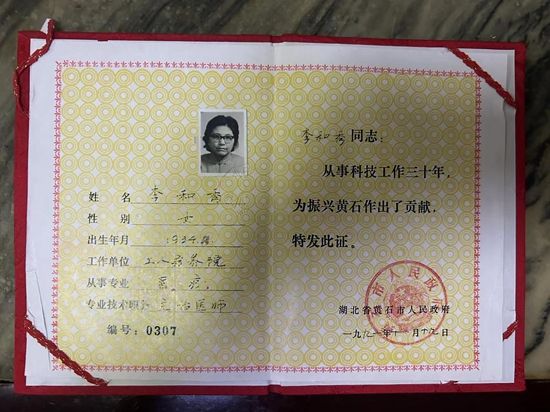 姓名 李和秀
性别 女
出生年月 1934.
工作单位 工人疗养院
从事专业 医疗
专业技术职务 主治医师
编号：0307
李和秀同志：
从事科技工作三十年，
为振兴黄石作出了贡献，
特发此证。
市人民政府
湖北省黄石市人民政府
一九九一年 月 日